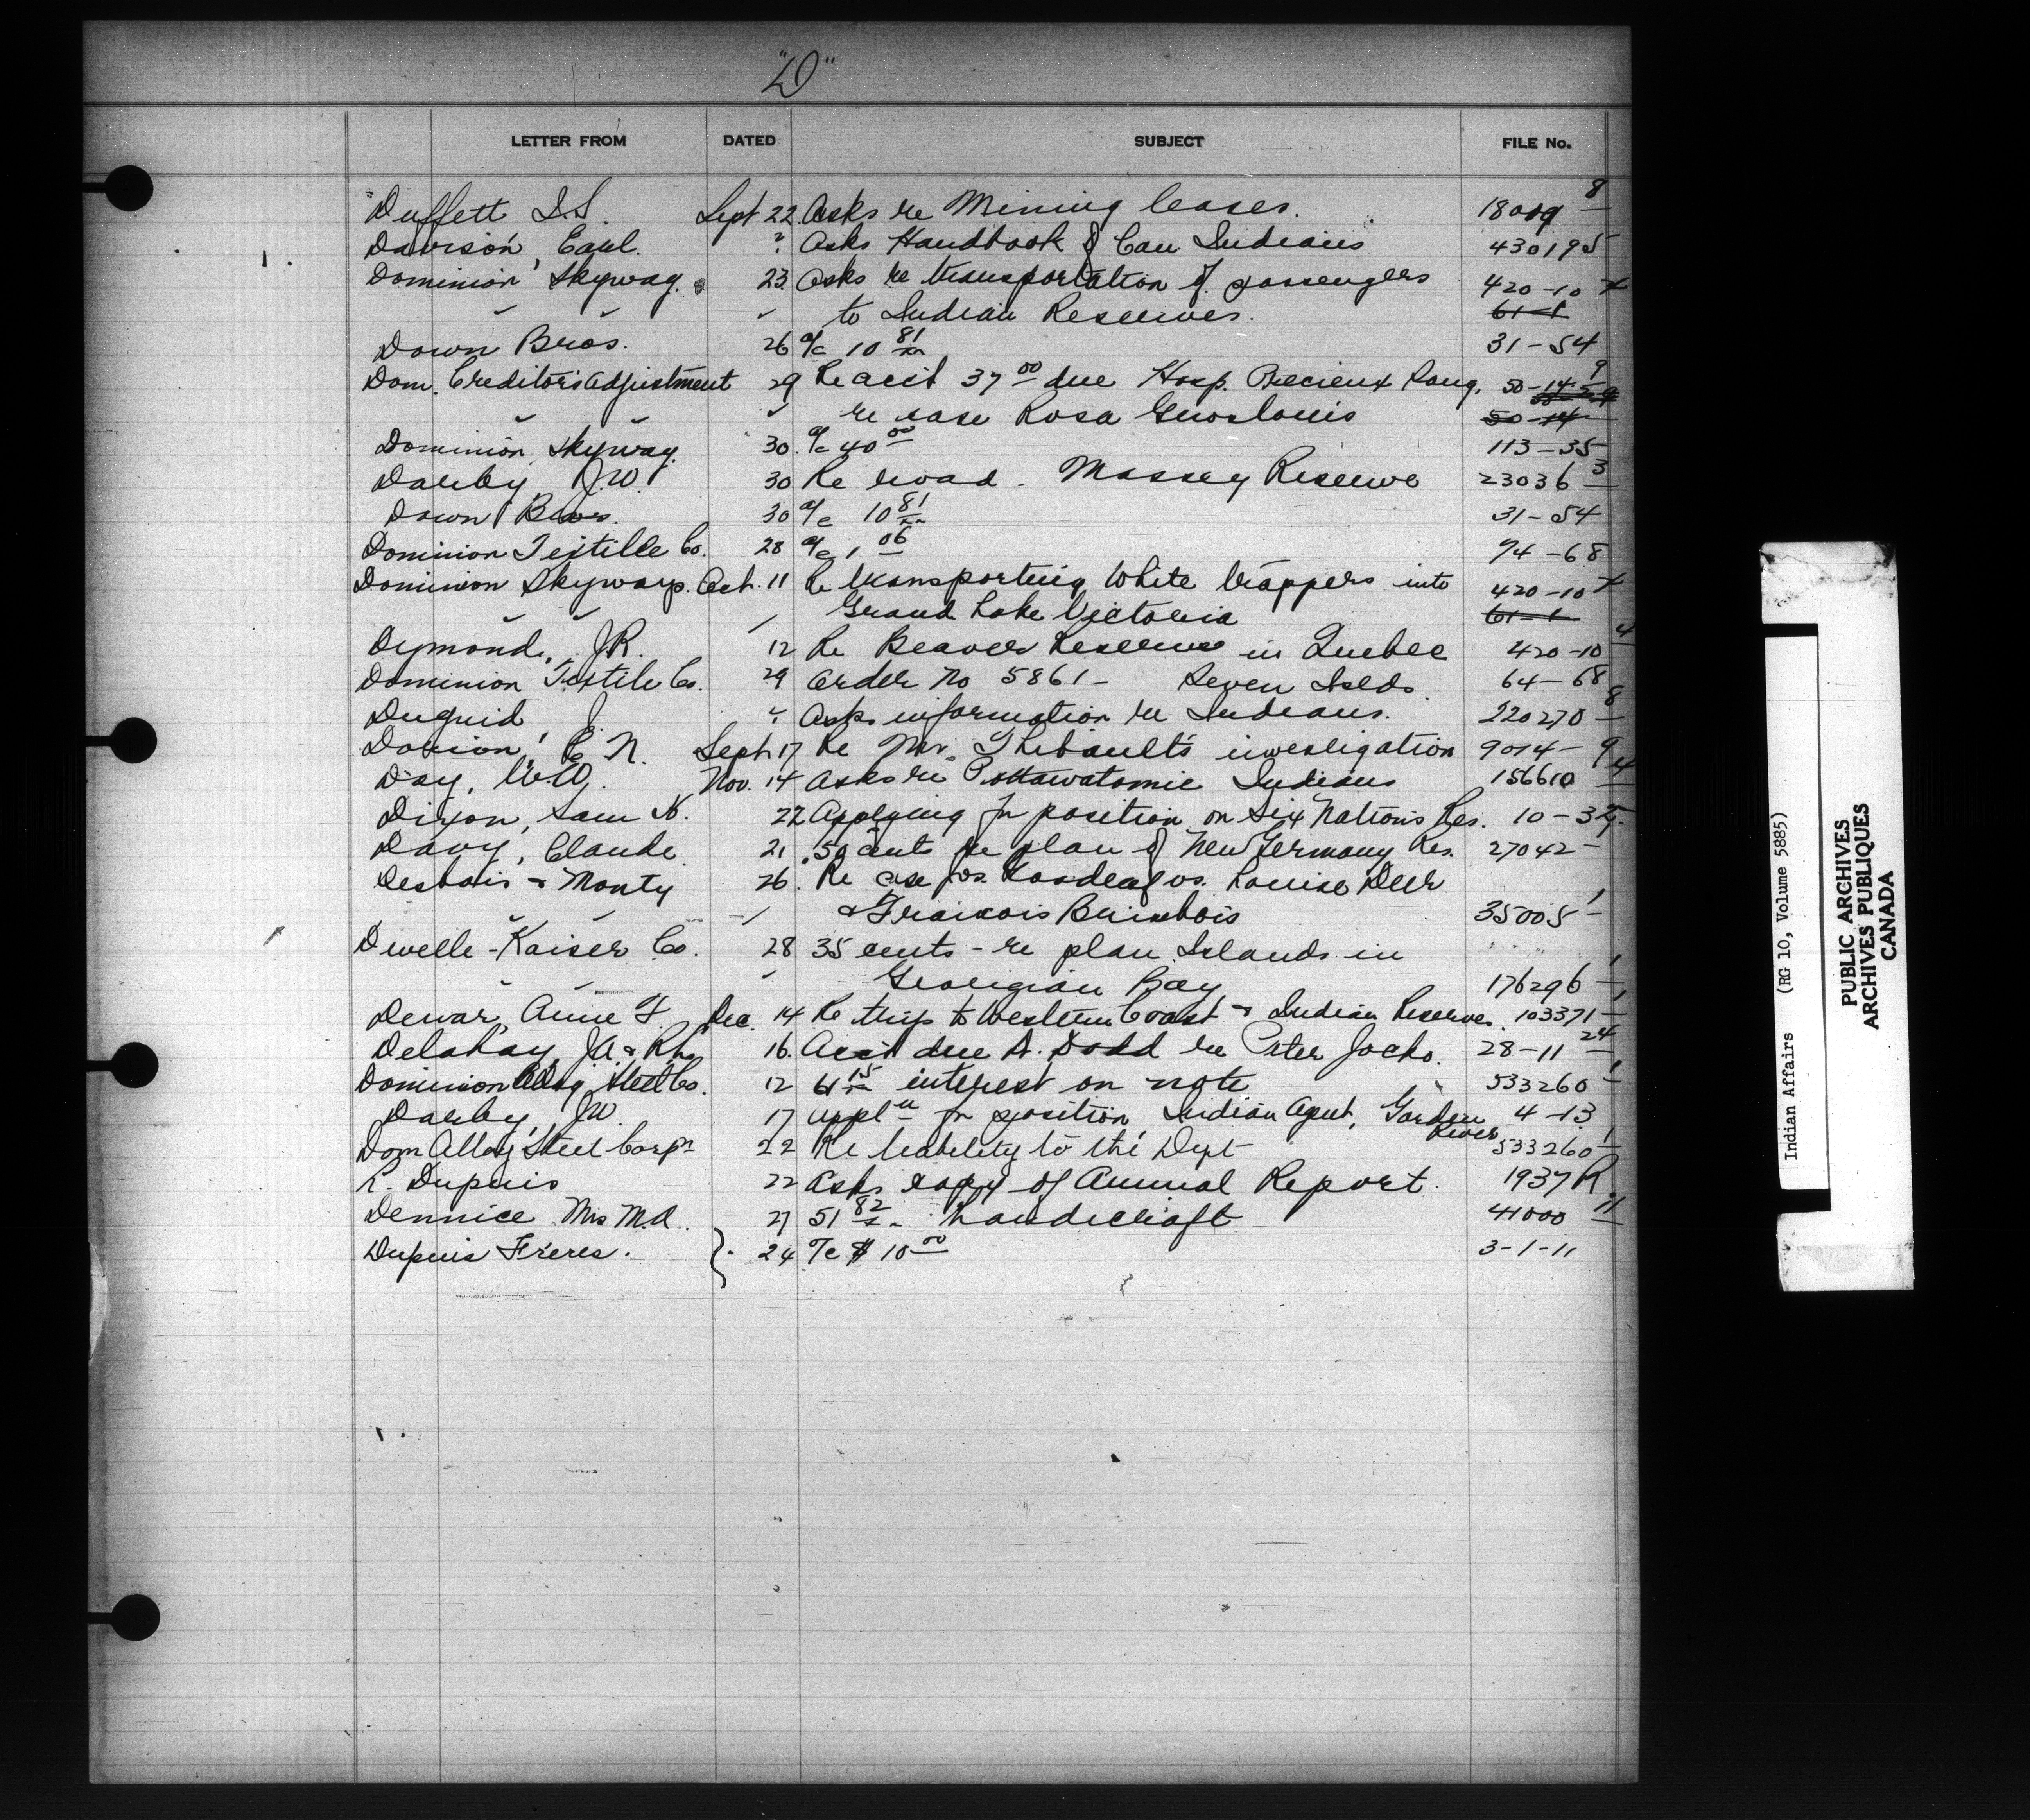 "D"
LETTER FROM DATED SUBJECT FILE No.
Duffett I.S. Sept 22 Asks re Mining leases. 18009 8
Davison, Earl. " Asks Handbook of Can Indians 430195
Dominion Skyway. 23 Asks re transportation of passengers 420-10 x
" " " to Indian Reserves. 61-1
Down Bros. 26 a/c 10 81/xx 31-54
Dom. Creditors Adjustment 29 Re acct 37 00 due Hosp. Precieux Sang, 50-14-5 9
" " " re case Rosa Groslouis 50-14
Dominion Skyway. 30. a/c 40 00 113-35
Darby J.W. 30 Re road. Massey Reserve 23036 3
Down Bros. 30 a/c 10 81/xx 31-54
Dominion Textile Co. 28 a/c 1 06 74-68
Dominion Skyways. Oct. 11 Re transporting White trappers into 420-10 x
" " " Grand Lake Victoria 61-1
Dymond, J.R. 12 Re Beaver Reserve in Quebec 420-10 4
Dominion Textile Co. 29 Order No 5861 - Seven Islds. 64-68
Duguid, J. " Asks information re Indians. 220270 8
Dorion, C. N. Sept. 17 Re Mr. Thibault's investigation 9014- 9
Day, W.W. Nov. 14 Asks re Pottawatomie Indians 156610 4
Dixon, Sam N. 22 Applying for position on Six Nations Res. 10-32.
Davy, Claude. 21 .50 cents for plan of New Germany Res. 27042-
Desbois & Monty 26. Re case Jos. vs. Louise Deer
" & Francois Brisebois 35005 1
Dwelle-Kaiser Co. 28 35 cents - re plan Islands in
" " " Georgian Bay 176296 1
Dewar, Anne F. Dec. 14 Re trip to Western Coast & Indian Reserves. 103371 1
Delahay, J.A. & R.h. 16. Acct due A. Dodd re Peter Jocko. 28-11 24
Dominion Alloy Steel Co. 12 61 15/xx interest on note 533260 1
Darby, J.W. 17 appl'n for position, Indian Agent, Garden River 4-13
Dom Alloy Steel Corpn 22 Re liability to the Dept 533260 1
L. Dupuis 22 Asks copy of Annual Report. 1937 R
Dennice Mrs M.A. 27 51 82/xx handicraft 41000 11
Dupuis Freres. 24 a/c $ 10 00 3-1-11
Indian Affairs (RG 10, Volume 5885)
PUBLIC ARCHIVES
ARCHIVES PUBLIQUES
CANADA